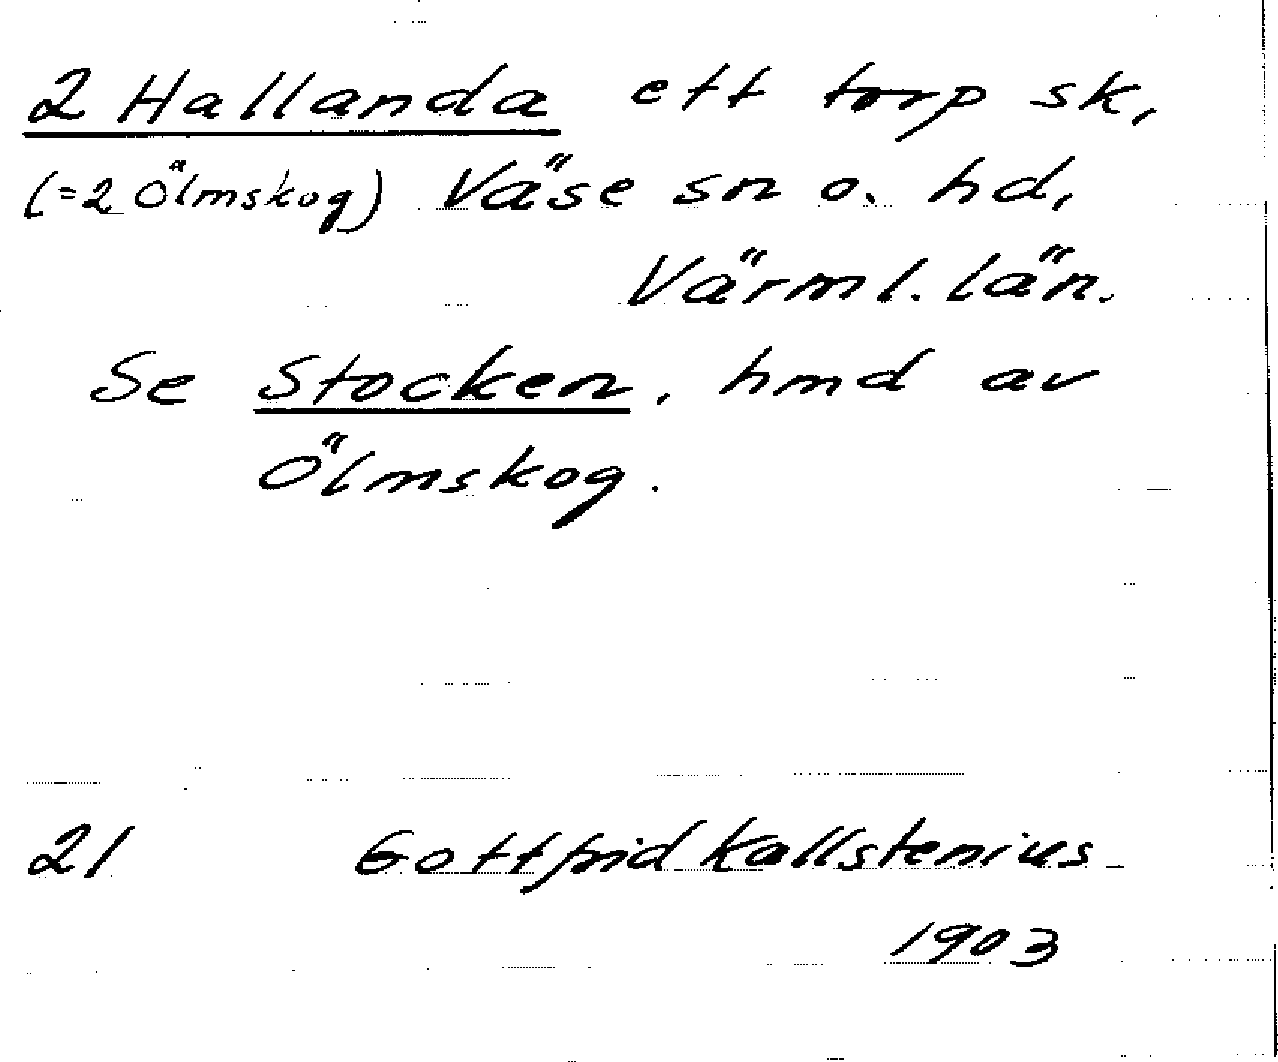 2 Hallanda ett torp sk,
(=2 Ölmskog) Väse sn o. hd,
Värml. län.
Se Stocken, hmd av
Ölmskog.
21 Gottfrid Kallstenius
1903